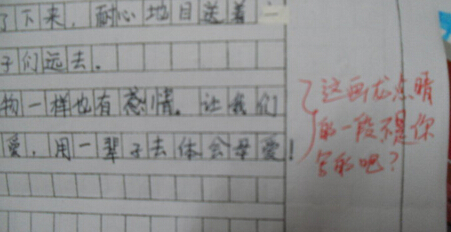 了下来，耐心地目送着一
子们远去。
物一样也有感情。让我们
爱，用一辈子去体会母爱！
这画龙点睛
的一段不是你
写的吧？